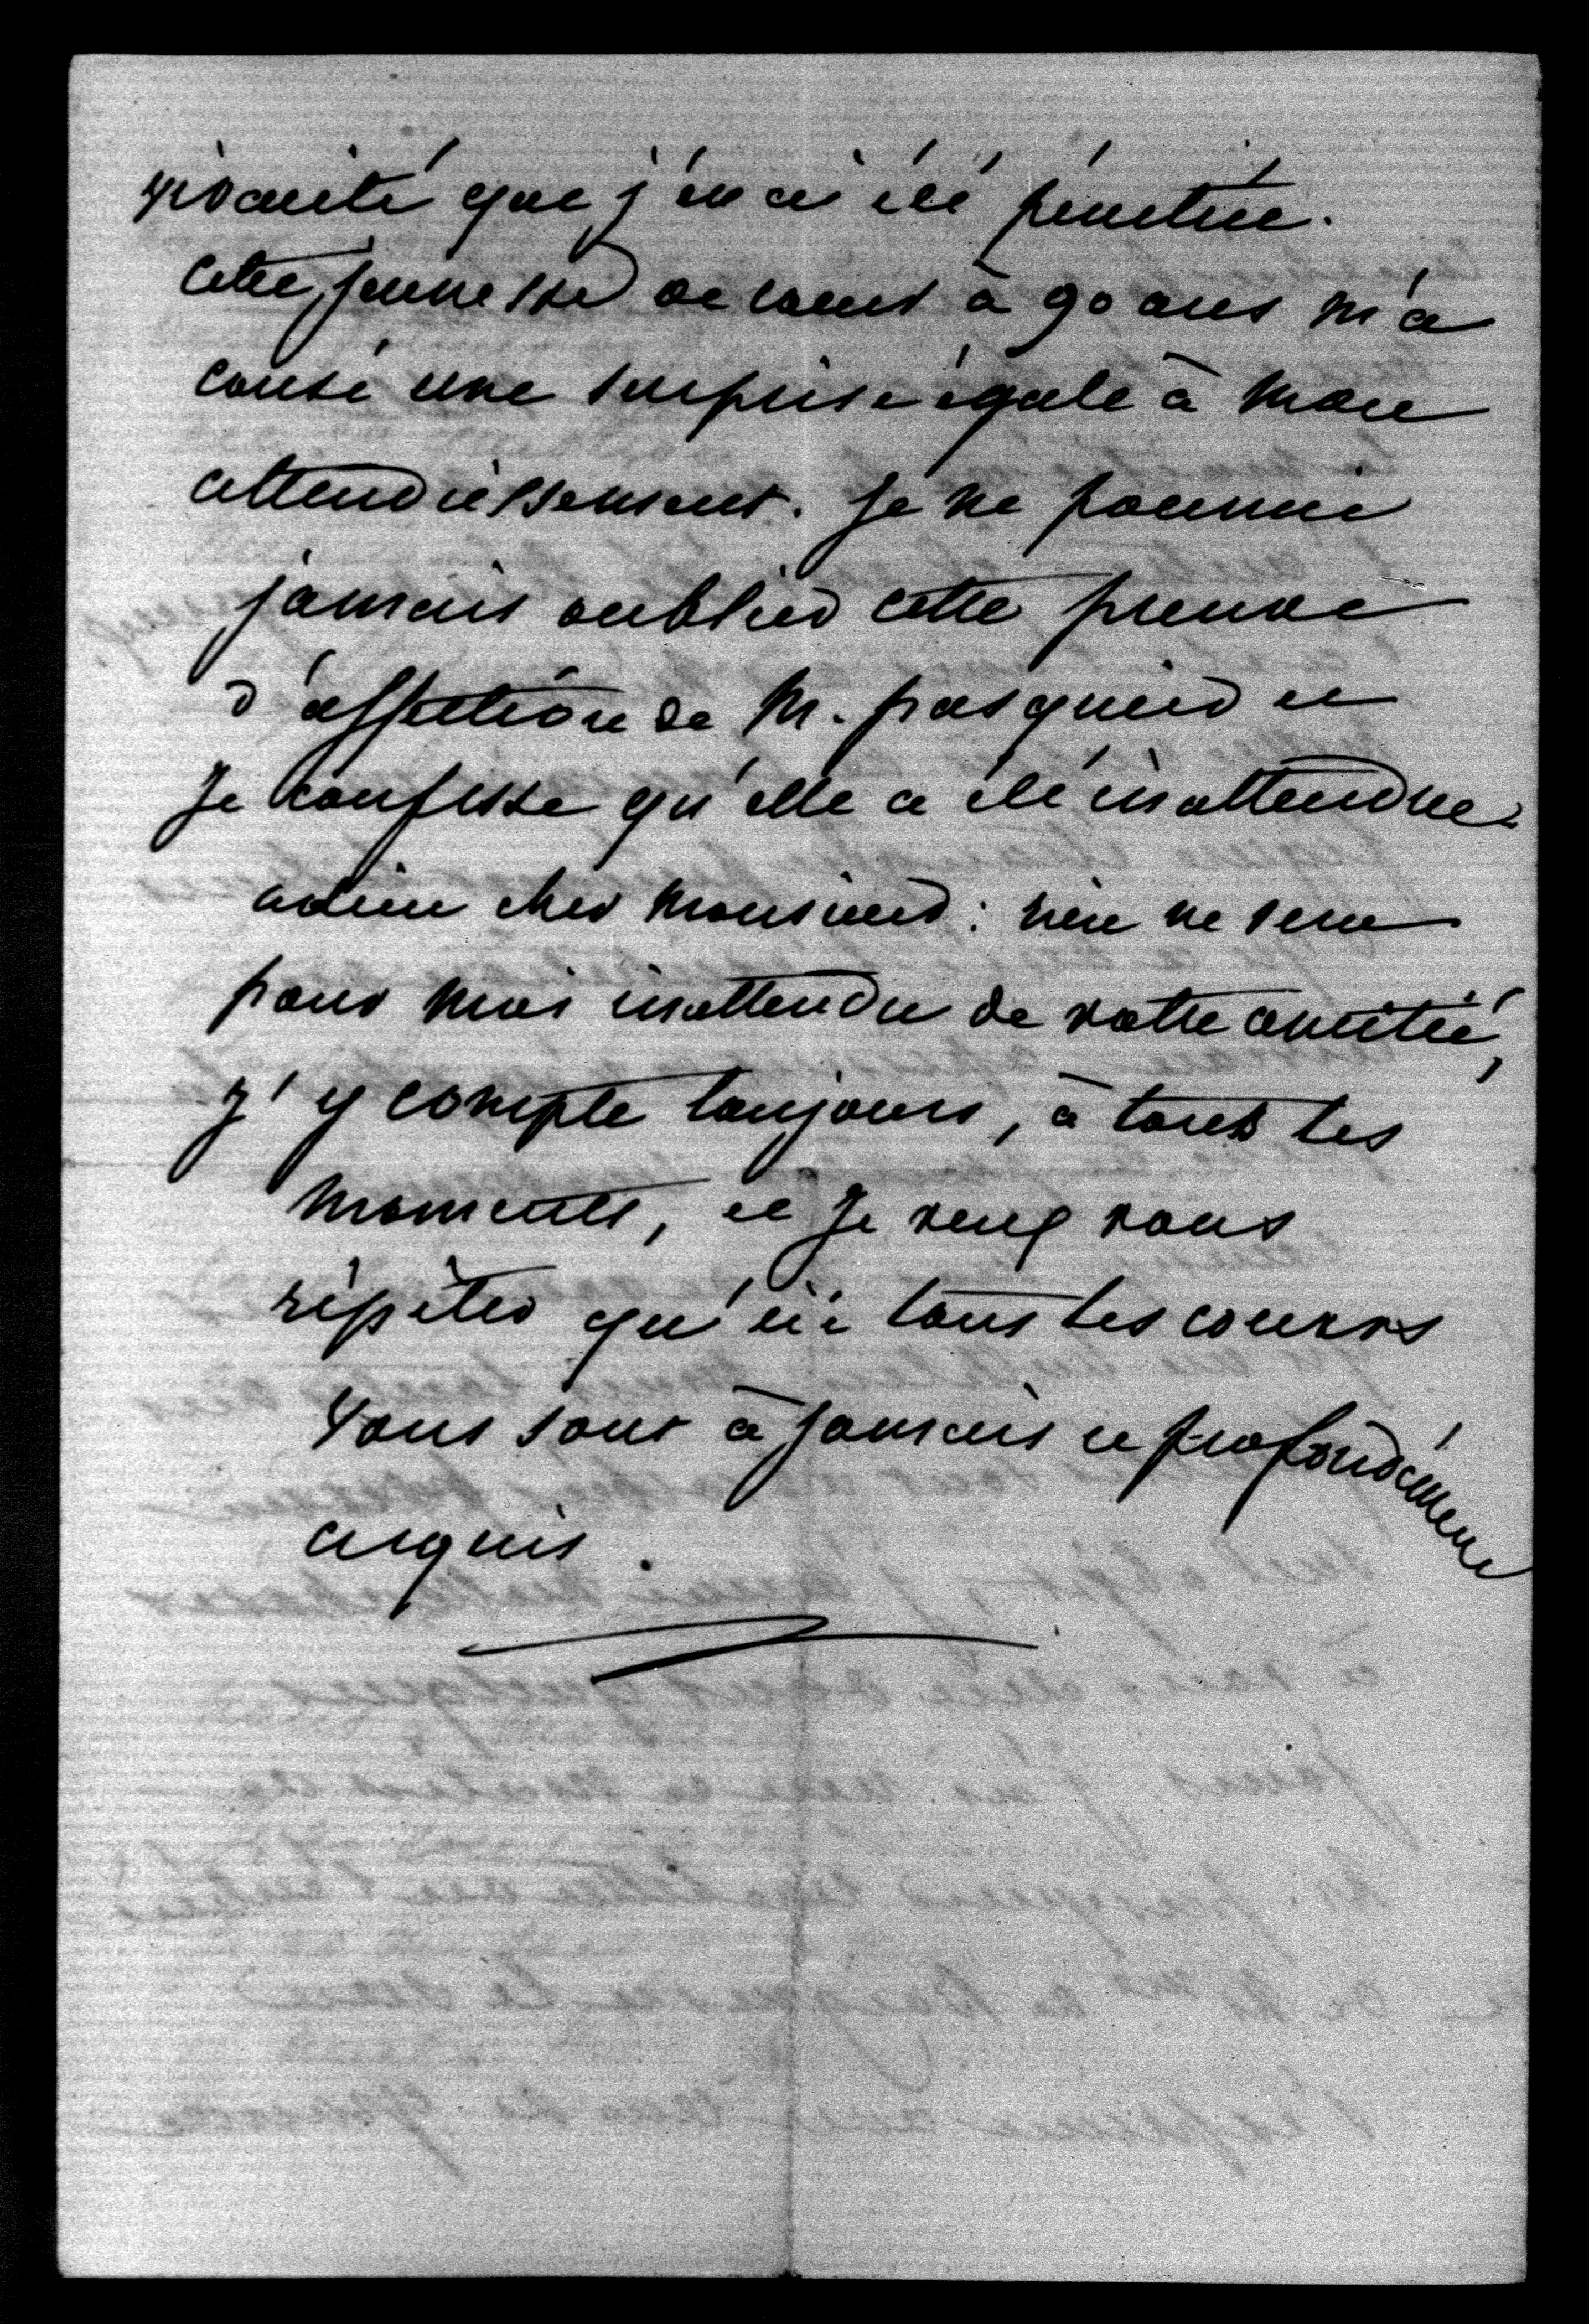 vivacité que j'en ai été pénétrée.
cette jeunesse de coeur à 90 ans m'a
causé une surprise égale à mon
attendrissement. je ne pourrai
jamais oublier cette preuve
d'affection de M. pasquier et
Je confesse qu'elle a été inattendue
adieu cher monsieur : rien ne sera
pour moi inattendu de votre amitié,
j'y compte toujours, à tous les
moments, et Je veux vous
répéter qu'ici tous les coeurs
vous sont à jamais et profondément
acquis.